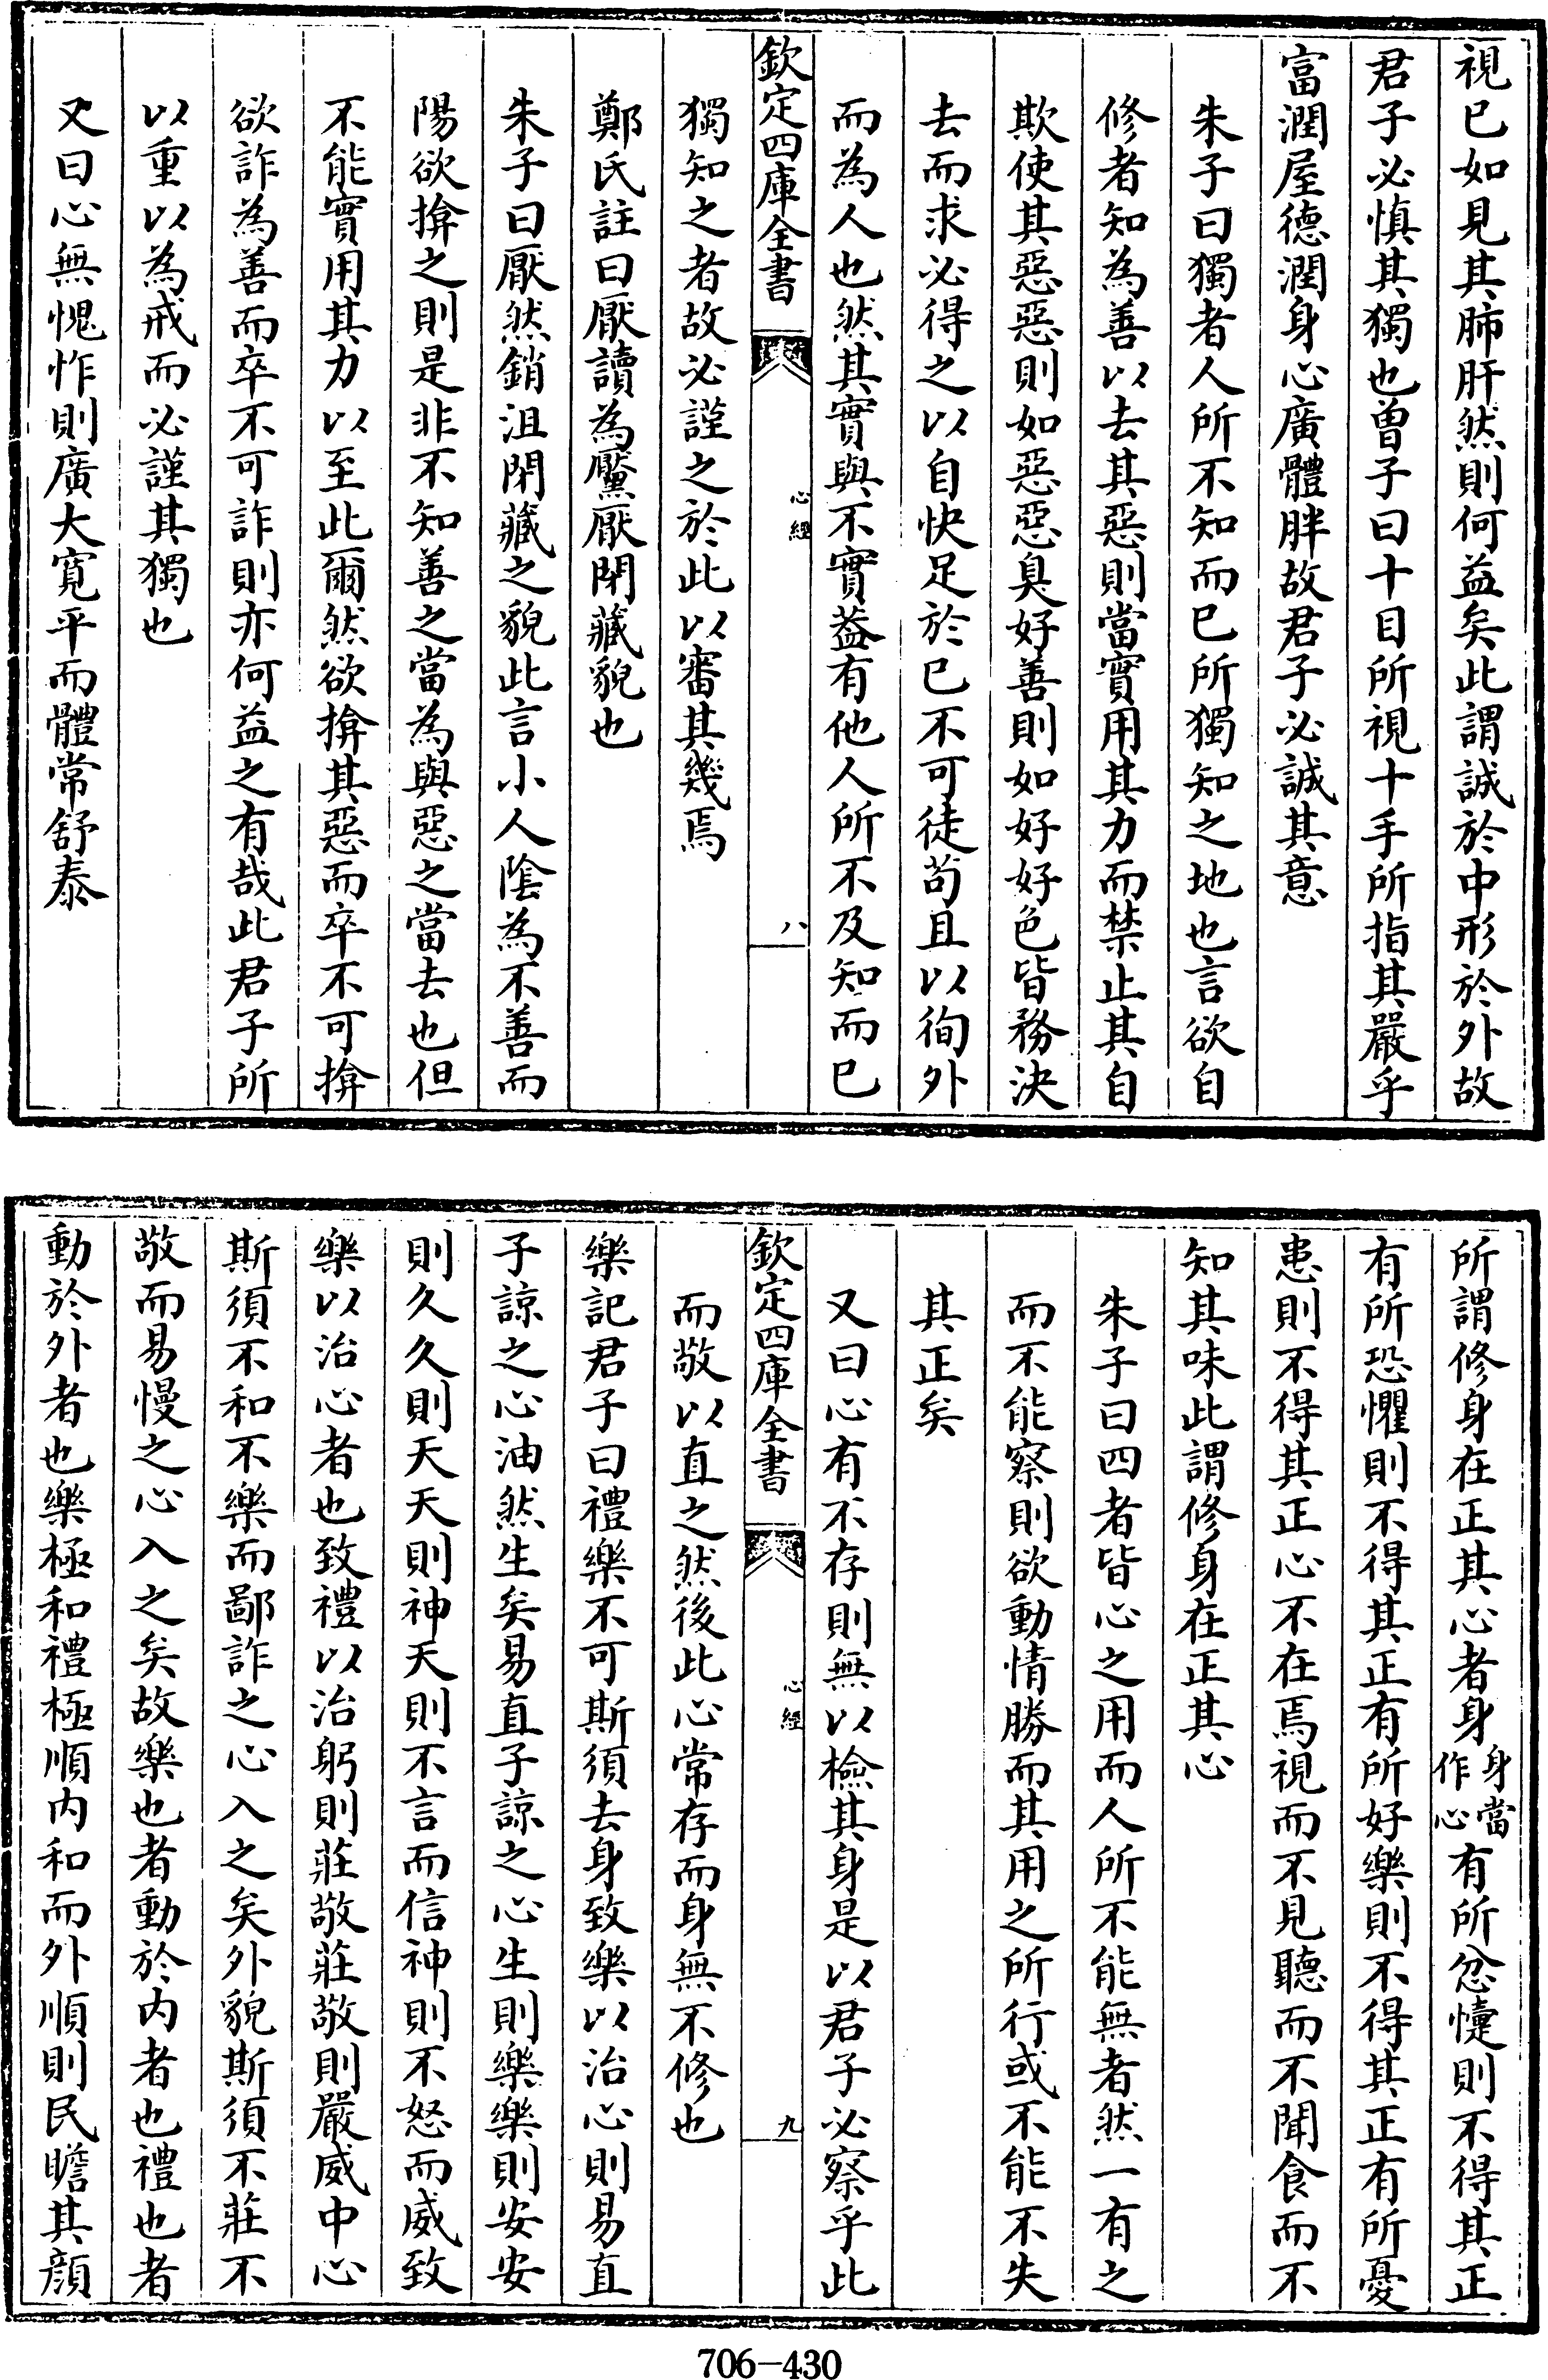 視已如見其肺肝然則何益矣此謂誠於中形於外故
君子必慎其獨也曽子曰十目所視十手所指其嚴乎
富潤屋德潤身心廣體胖故君子必誠其意
朱子曰獨者人所不知而已所獨知之地也言欲自
修者知為善以去其惡則當實用其力而禁止其自
欺使其惡惡則如惡惡臭好善則如好好色皆務決
去而求必得之以自快足於已不可徒苟且以徇外
而為人也然其實與不實葢有他人所不及知而已
欽定四庫全書
心經
八
獨知之者故必謹之於此以審其幾焉
鄭氏註曰厭讀為黶厭閉藏貌也
朱子曰厭然銷沮閉藏之貌此言小人隂為不善而
陽欲揜之則是非不知善之當為與惡之當去也但
不能實用其力以至此爾然欲揜其惡而卒不可揜
欲詐為善而卒不可詐則亦何益之有哉此君子所
以重以為戒而必謹其獨也
又曰心無愧怍則廣大寛平而體常舒泰
所謂修身在正其心者身身當作心有所忿懥則不得其正
有所恐懼則不得其正有所好樂則不得其正有所憂
患則不得其正心不在焉視而不見聽而不聞食而不
知其味此謂修身在正其心
朱子曰四者皆心之用而人所不能無者然一有之
而不能察則欲動情勝而其用之所行或不能不失
其正矣
又曰心有不存則無以檢其身是以君子必察乎此
欽定四庫全書
心經
九
而敬以直之然後此心常存而身無不修也
樂記君子曰禮樂不可斯須去身致樂以治心則易直
子諒之心油然生矣易直子諒之心生則樂樂則安安
則久久則天天則神天則不言而信神則不怒而威致
樂以治心者也致禮以治躬則莊敬莊敬則嚴威中心
斯須不和不樂而鄙詐之心入之矣外貌斯須不莊不
敬而易慢之心入之矣故樂也者動於内者也禮也者
動於外者也樂極和禮極順内和而外順則民瞻其顔
706-430